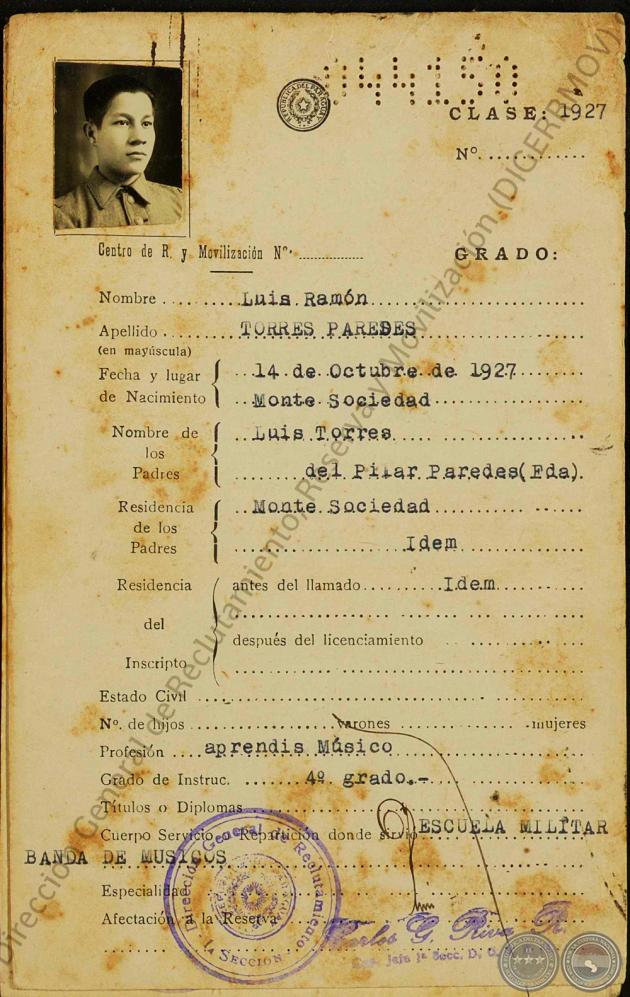 044150
REPUBLICA DEL PARAGUAY
CLASE: 1927
Nº.
Centro de R. y Movilización Nº.
GRADO:
Nombre Luis Ramón
Apellido TORRES PAREDES
(en mayúscula)
Fecha y lugar de Nacimiento 14 de Octubre de 1927
Monte Sociedad
Nombre de los Padres Luis Torres
del Pilar Paredes(Fda).
Residencia de los Padres Monte Sociedad
Idem
Residencia del Inscripto antes del llamado Idem
después del licenciamiento
Estado Civil
Nº. de hijos varones mujeres
Profesión aprendis Músico
Grado de Instruc. 4º grado.-
Títulos o Diplomas
Cuerpo Servicio o Repartición donde sirvio ESCUELA MILITAR
BANDA DE MUSICOS
Especialidad
Afectación a la Reserva
Dirección General de Reclutamiento
1a SECCION
Carlos G. Riva R.
Jefe 1ª Secc. D.
Dirección General de Reclutamiento, Reserva y Movilización (DIGERRMOV)